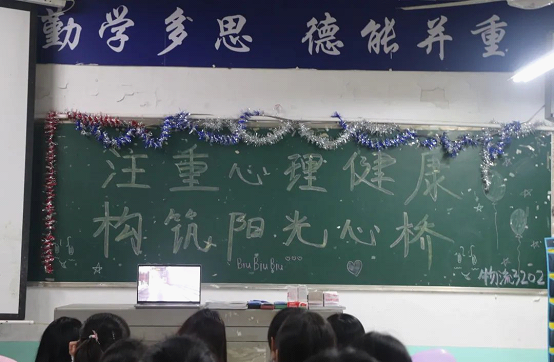 勤学多思 德能并重
注重心理健康
构筑阳光心桥
Biu Biu Biu
物流3202